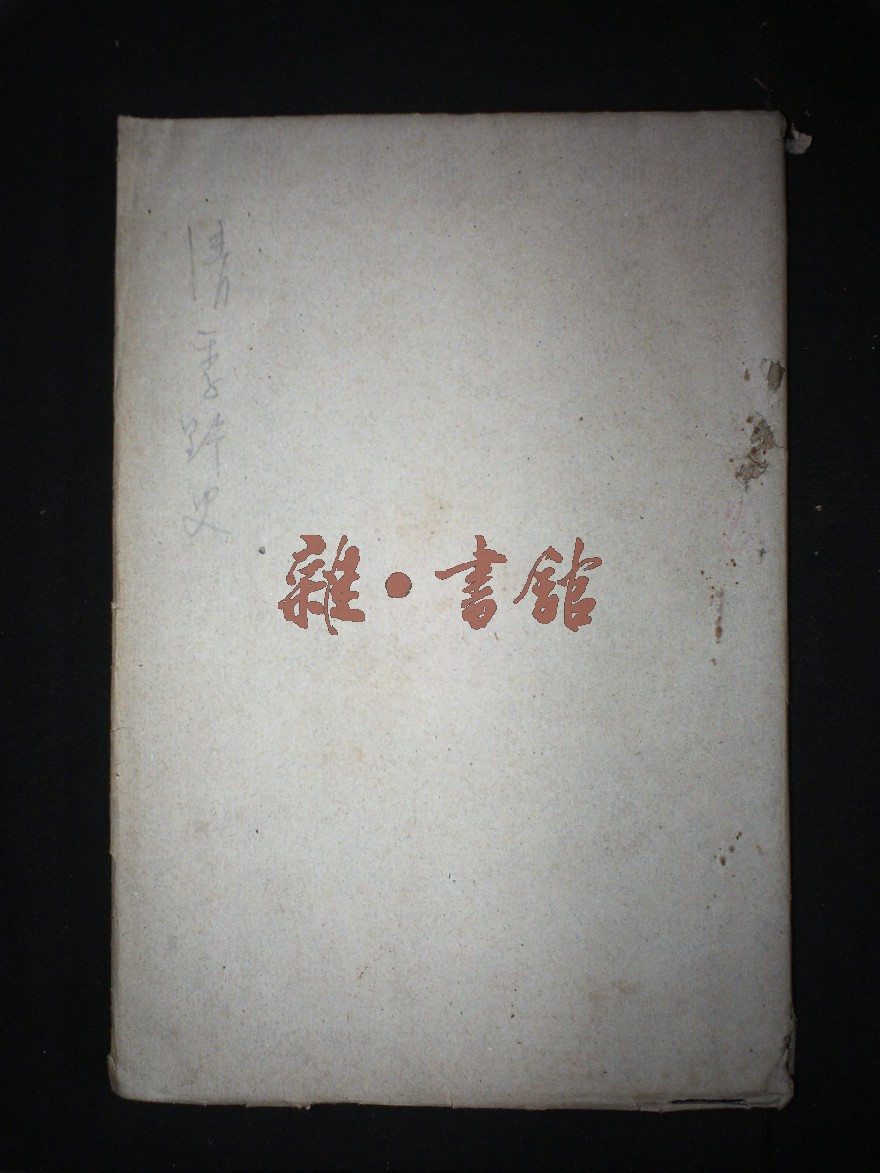 清季野史
雜·書館